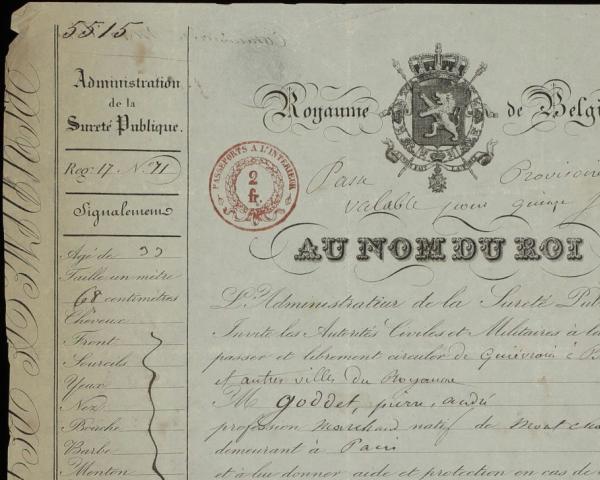 5515
Administration
de la
Sureté Publique.
Reg: 17 N° 71
Signalement
Agé de 33
Taille un mètre
68 centimètres
Cheveux
Front
Sourcils
Yeux
Nez
Bouche
Barbe
Menton
Royaume de Belgi
PASSEPORTS A L'INTERIEUR
2
fr.
Passe Provisoire
valable pour quinze j
AU NOM DU ROI
L'Administrateur de la Sureté Pub
Invite les Autorités Civiles et Militaires à la
passer et librement circuler de Quiévrain à B
et autres villes du Royaume
M goddet, pierre, andré
profession Marchand natif de Mont
demeurant à Paris
et à leu donner aide et protection en cas de